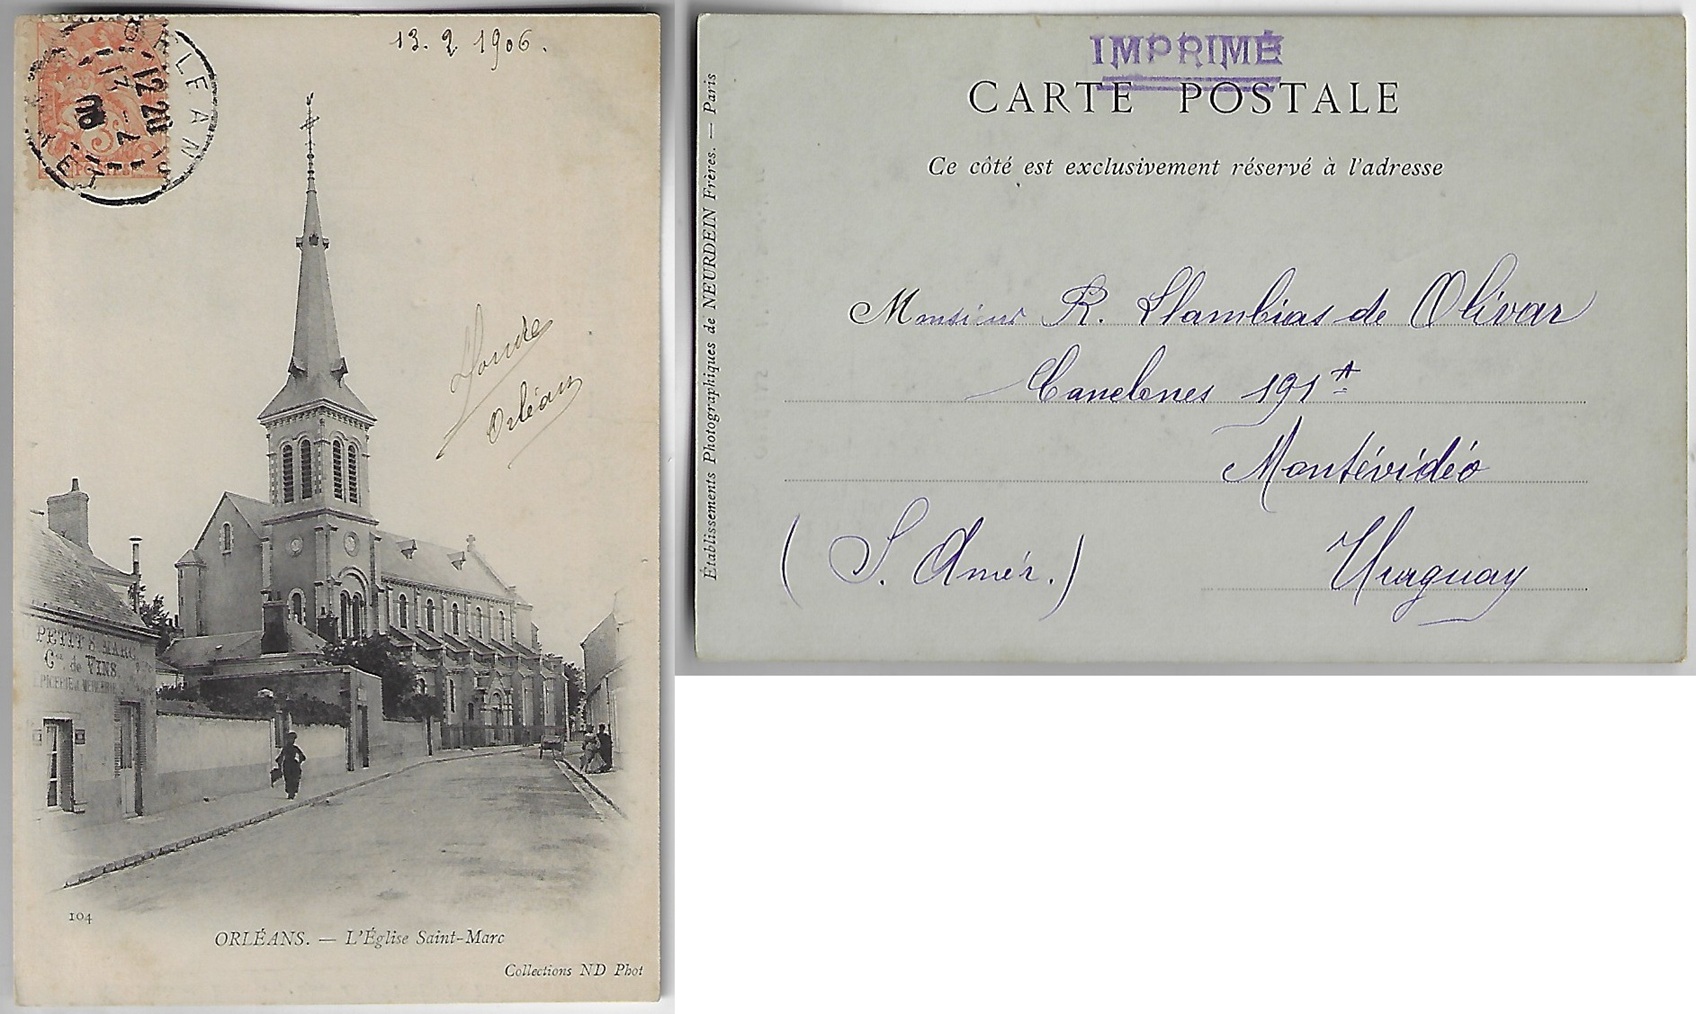 13. 2 1906.
ORLÉANS
Orléans
PETIT St MARC
Cce de VINS
ÉPICERIE & MERCERIE
104
ORLÉANS. — L'Église Saint-Marc
Collections ND Phot
IMPRIMÉ
CARTE POSTALE
Ce côté est exclusivement réservé à l'adresse
Établissements Photographiques de NEURDEIN Frères. — Paris
Monsieur R. Llambias de Olivar
Canelones 191A
Montévidéo
(S. Amér.) Uruguay